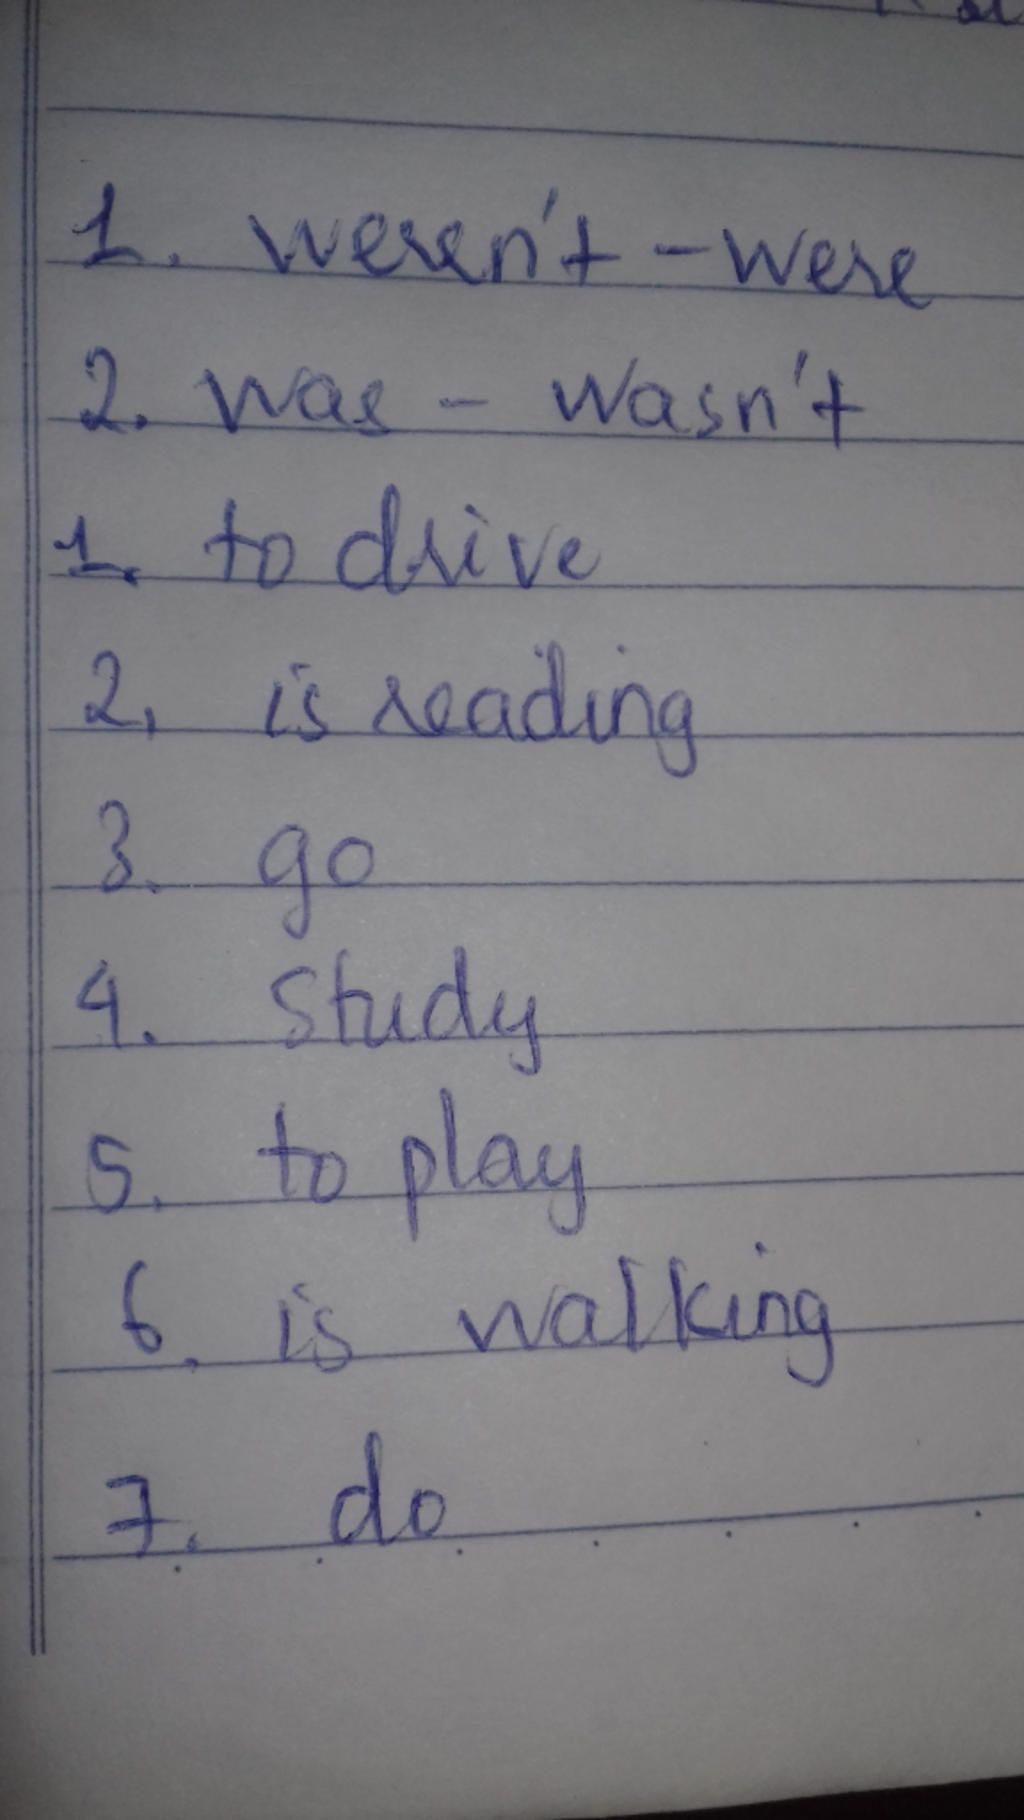 1. weren't - were
2. was - wasn't
1. to drive
2, is reading
3. go
4. study
5. to play
6. is walking
7. do